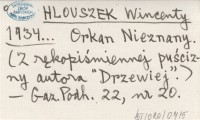 HLOUSZEK Wincenty
1934... Orkan Nieznany.
(Z rękopiśmiennej puściz-
ny autora "Drzewiej".)
— Gaz. Podh. 22, nr 20.